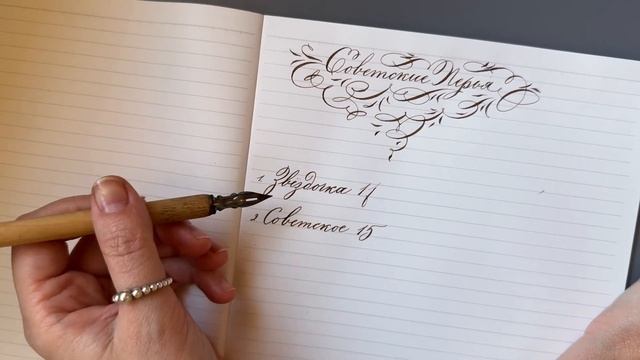 Советские Перья
1. Звездочка 11
2. Советское 15